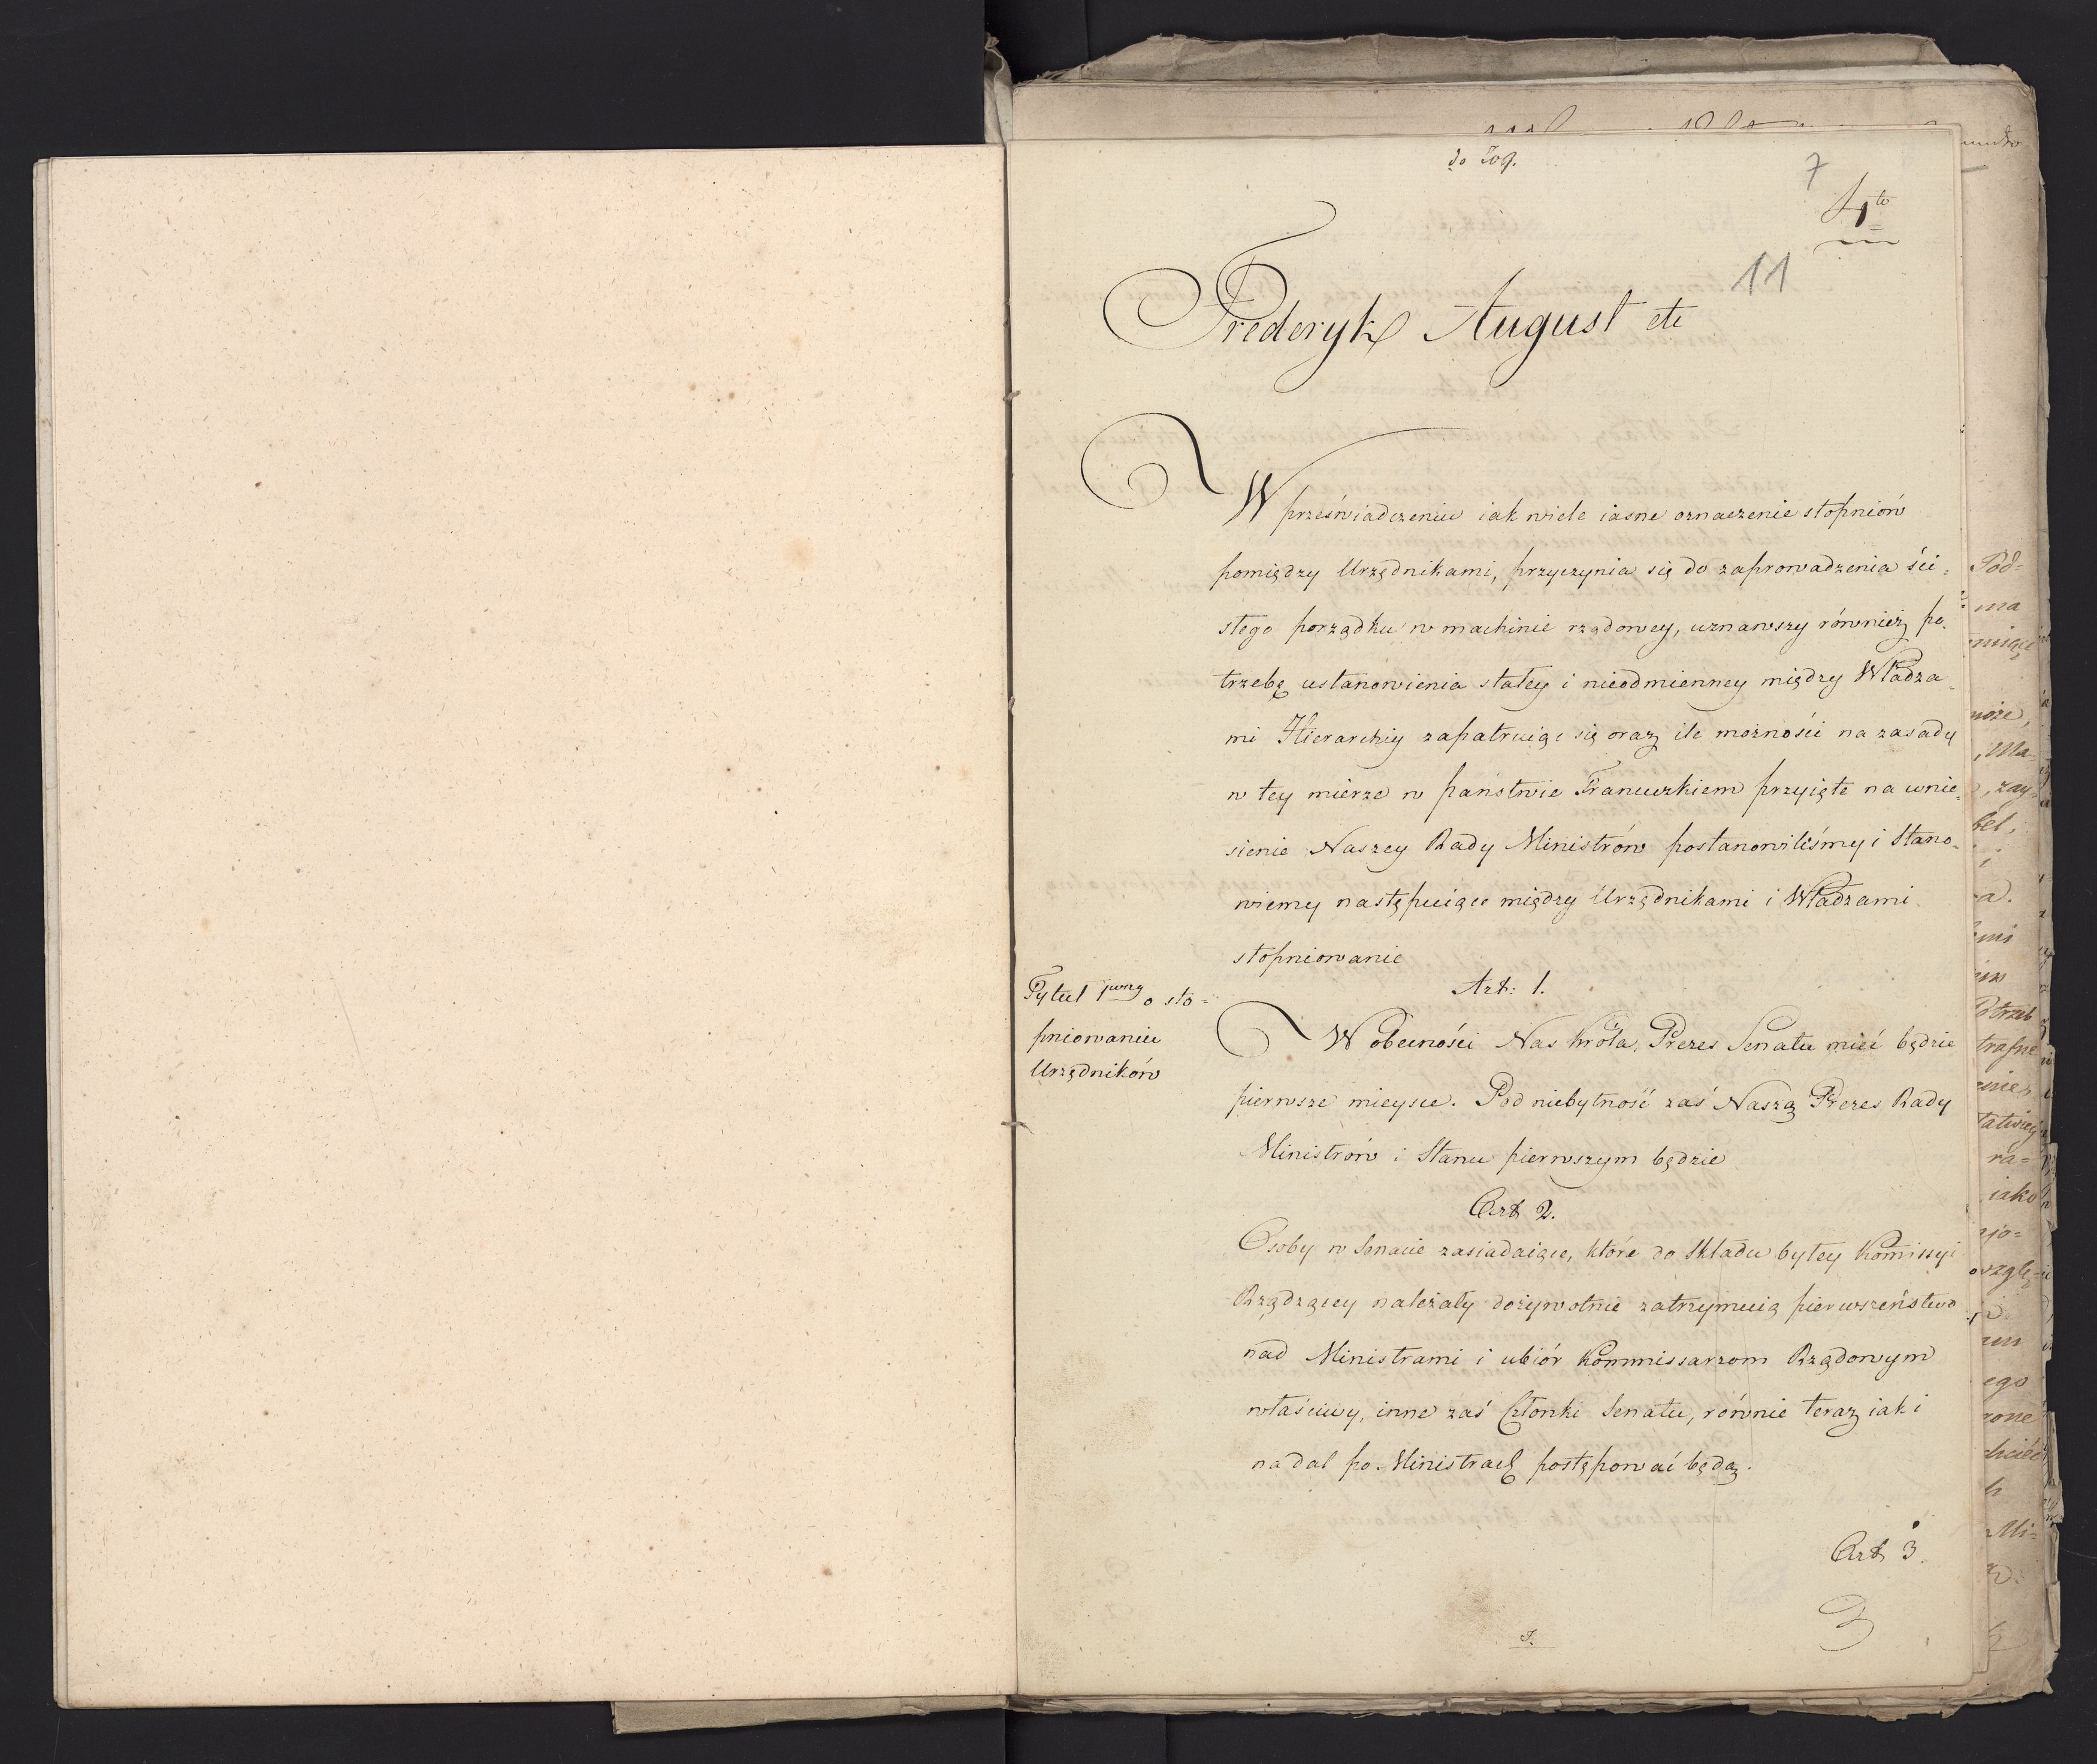 do 709.
7
4to
11
Frederyk August etc
W przeświadczeniu iak wiele iasne oznaczenie stopniów
pomiędzy Urzędnikami, przyczynia się do zaprowadzenia ści=
słego porządku w machinie rządowey, uznawszy również po=
trzebę ustanowienia stałey i nieodmienney między Władza=
mi Hierarchiy zapatruiąc się oraz ile możności na zasady
w tey mierze w państwie Francuzkiem przyięte na wnie=
sienie Naszey Rady Ministrów postanowiliśmy i Stano=
wiemy następuiące między Urzędnikami i Władzami
stopniowanie
Tytuł 1wszy o sto=
pniowaniu
Urzędników
Art: 1.
W obecności Nas Króla, Prezes Senatu mieć będzie
pierwsze mieysce. Pod niebytność zaś Naszą Prezes Rady
Ministrów i Stanu pierwszym będzie
Art 2.
Osoby w Senacie zasiadaiące, które do Składu byłey Kommissyi
Rządzącey należały dożywotnie zatrzymuią pierwszeństwo
nad Ministrami i ubiór Kommissarzom Rządowym
właściwy, inne zaś Członki Senatu, równie teraz iak i
nadal po Ministrach postępować będą.
Art 3.